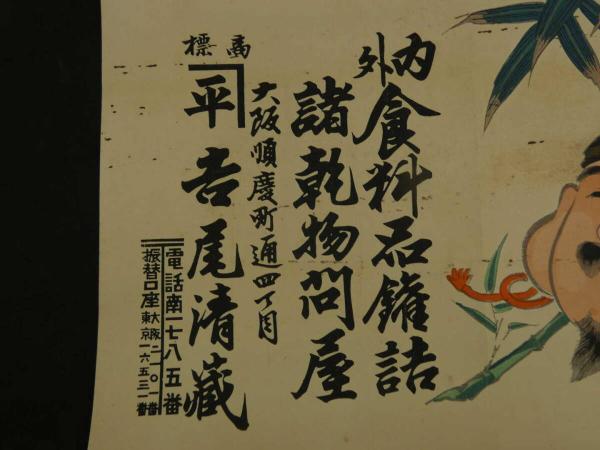 内外食料品鑵詰
諸乾物問屋
大阪順慶町通四丁目
商標
平
吉尾清藏
電話南一七八五番
振替口座
大阪二一〇一番
東京一六五三一番